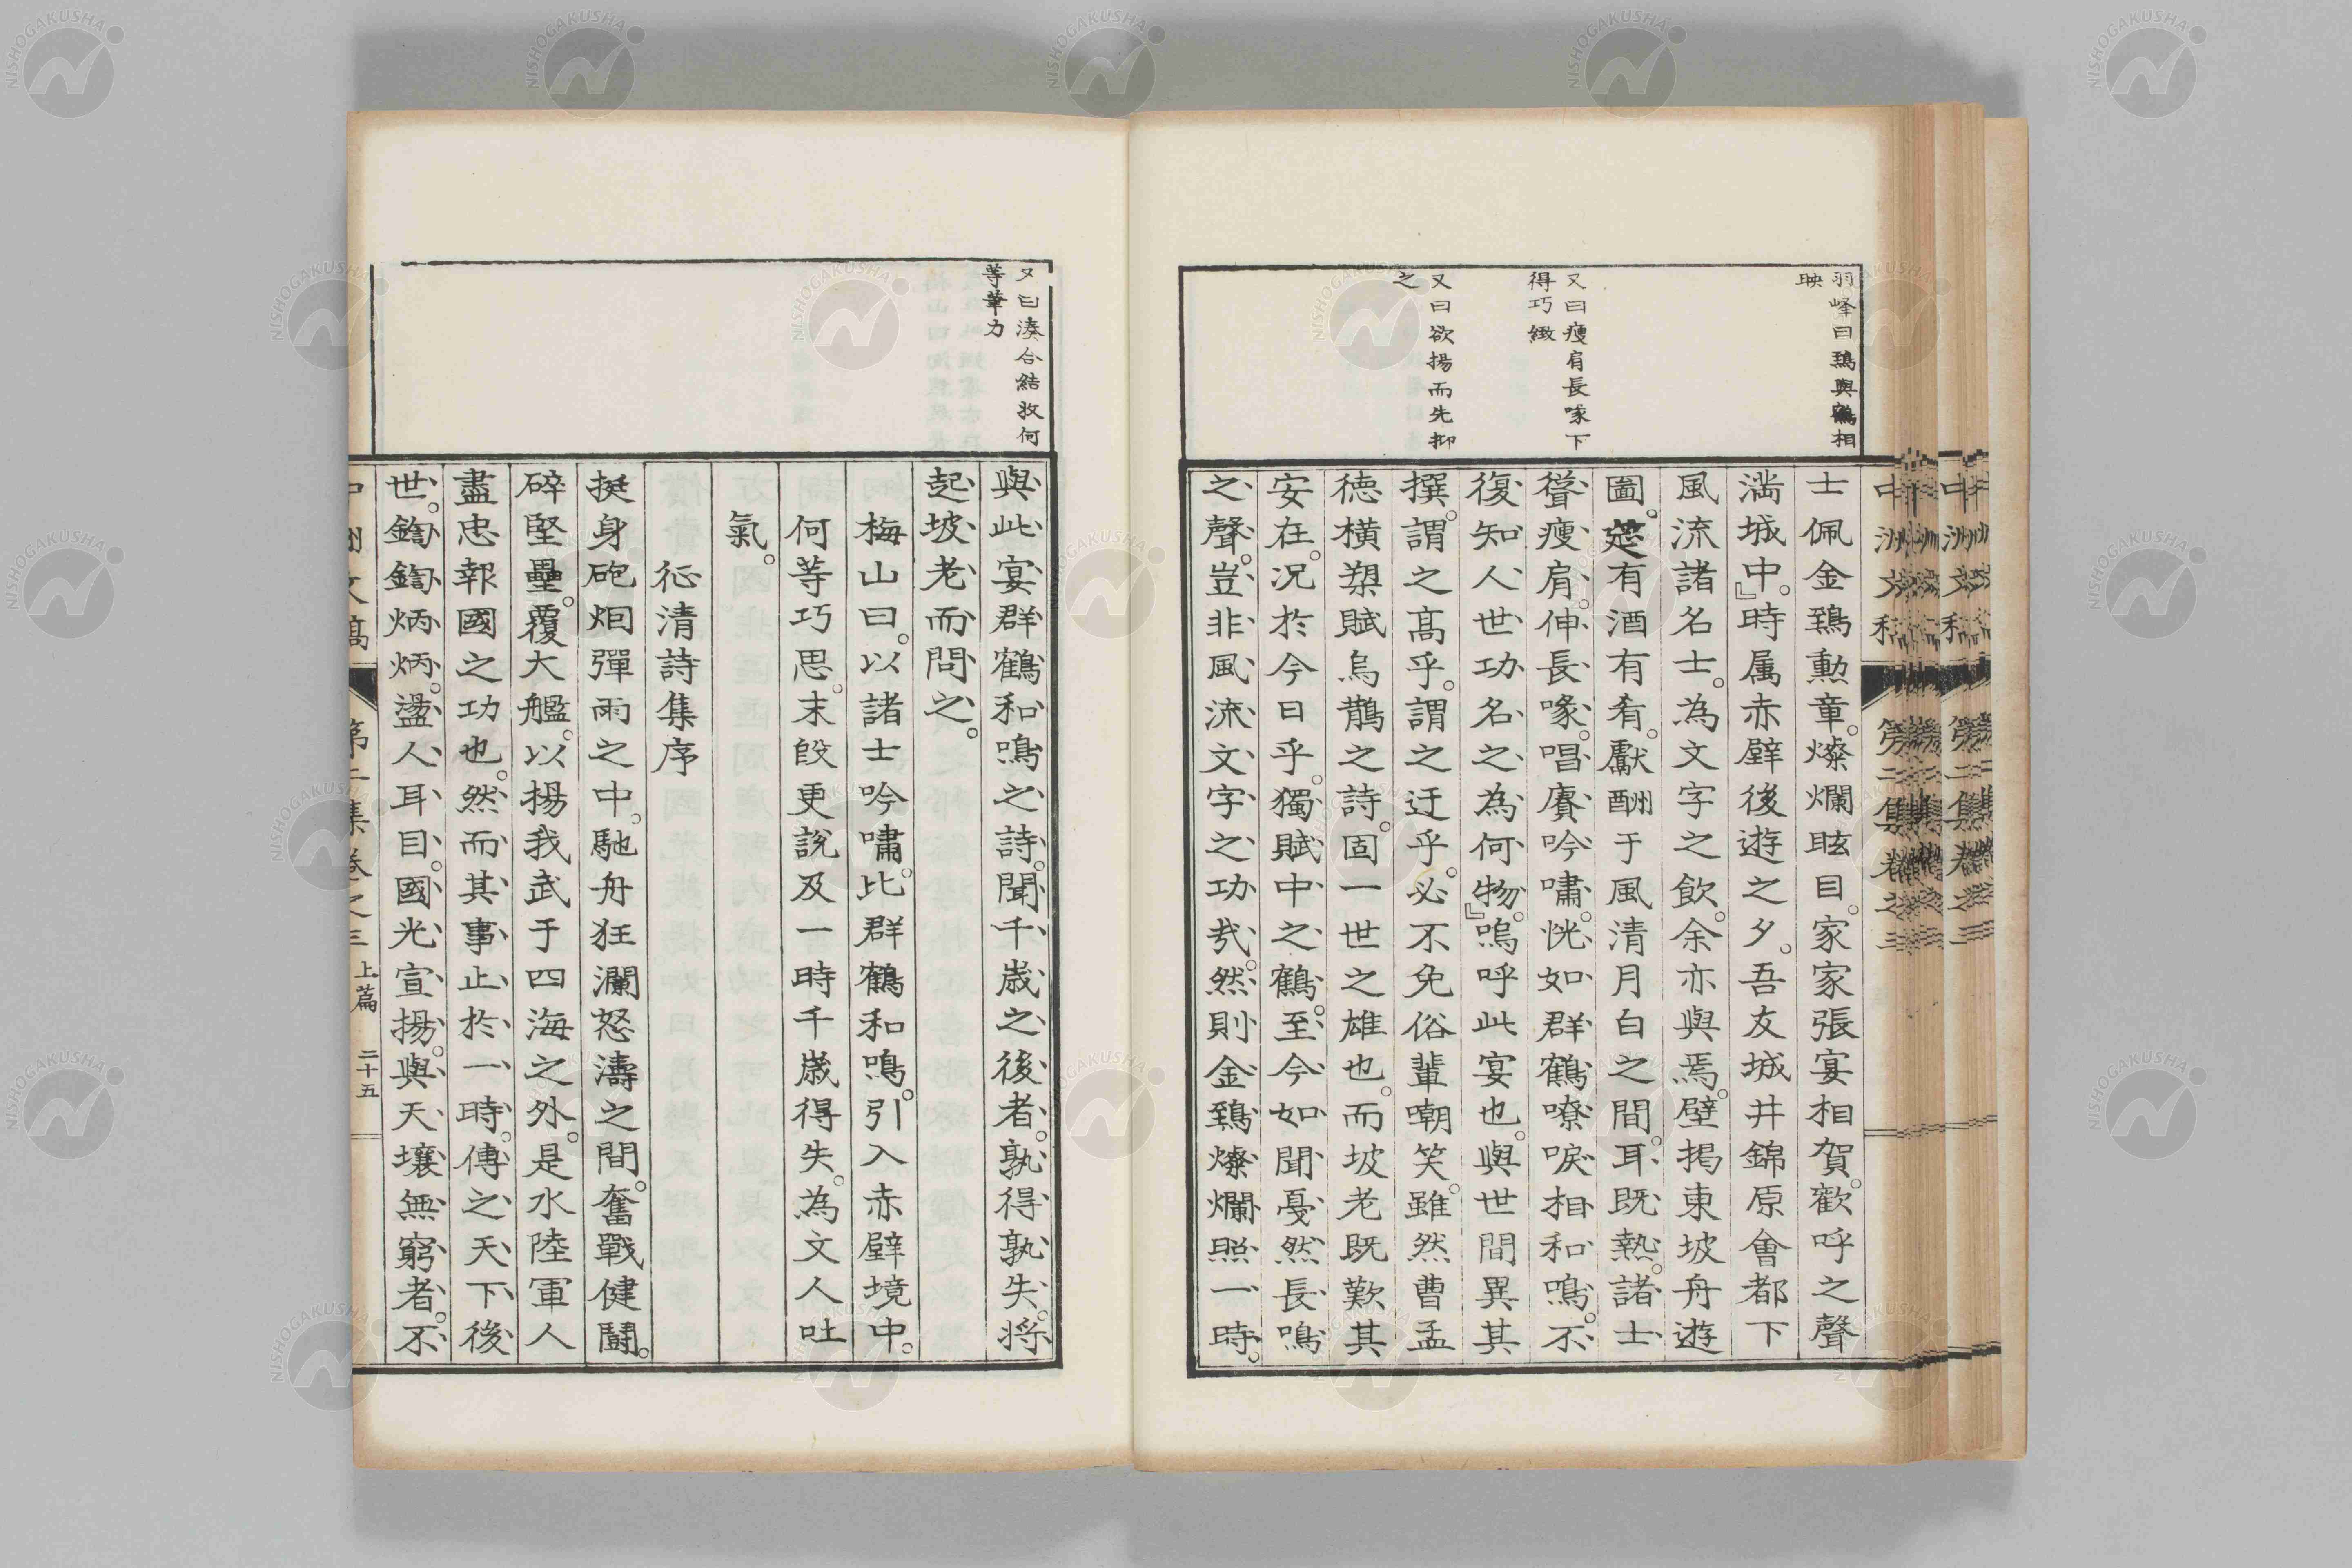 羽峰曰鵄與鶴相
映
又曰瘦肩長喙下
得巧緻
又曰欲揚而先抑
之
士佩金鵄勲章。燦爛眩目。家家張宴相賀。歡呼之聲
満城中。』時属赤壁後遊之夕。吾友城井錦原會都下
風流諸名士。為文字之飲。余亦與焉。壁掲東坡舟遊
圖。筵有酒有肴。獻酬于風清月白之間。耳既熱。諸士
聳瘦肩。伸長喙。唱賡吟嘯。恍如群鶴嘹唳相和鳴。不
復知人世功名之為何物。』嗚呼此宴也。與世間異其
撰。謂之高乎。謂之迂乎。必不免俗輩嘲笑。雖然曹孟
徳横槊賦烏鵲之詩。固一世之雄也。而坡老既歎其
安在。况於今日乎。獨賦中之鶴。至今如聞戞然長鳴
之聲。豈非風流文字之功哉。然則金鵄燦爛照一時。
又曰湊合結收何
等筆力
與此宴群鶴和鳴之詩。聞千歳之後者。孰得孰失。将
起坡老而問之。
梅山曰。以諸士吟嘯。比群鶴和鳴。引入赤壁境中。
何等巧思。末段更説及一時千歳得失。為文人吐
氣。
征清詩集序
挺身砲烟彈雨之中。馳舟狂瀾怒濤之間。奮戰健闘。
碎堅壘。覆大艦。以揚我武于四海之外。是水陸軍人
盡忠報國之功也。然而其事止於一時。傳之天下後
世。鍧鍧炳炳。盪人耳目。國光宣揚。與天壤無窮者。不
中洲文稿 第二集卷之三 上篇 二十五
NISHOGAKUSHA